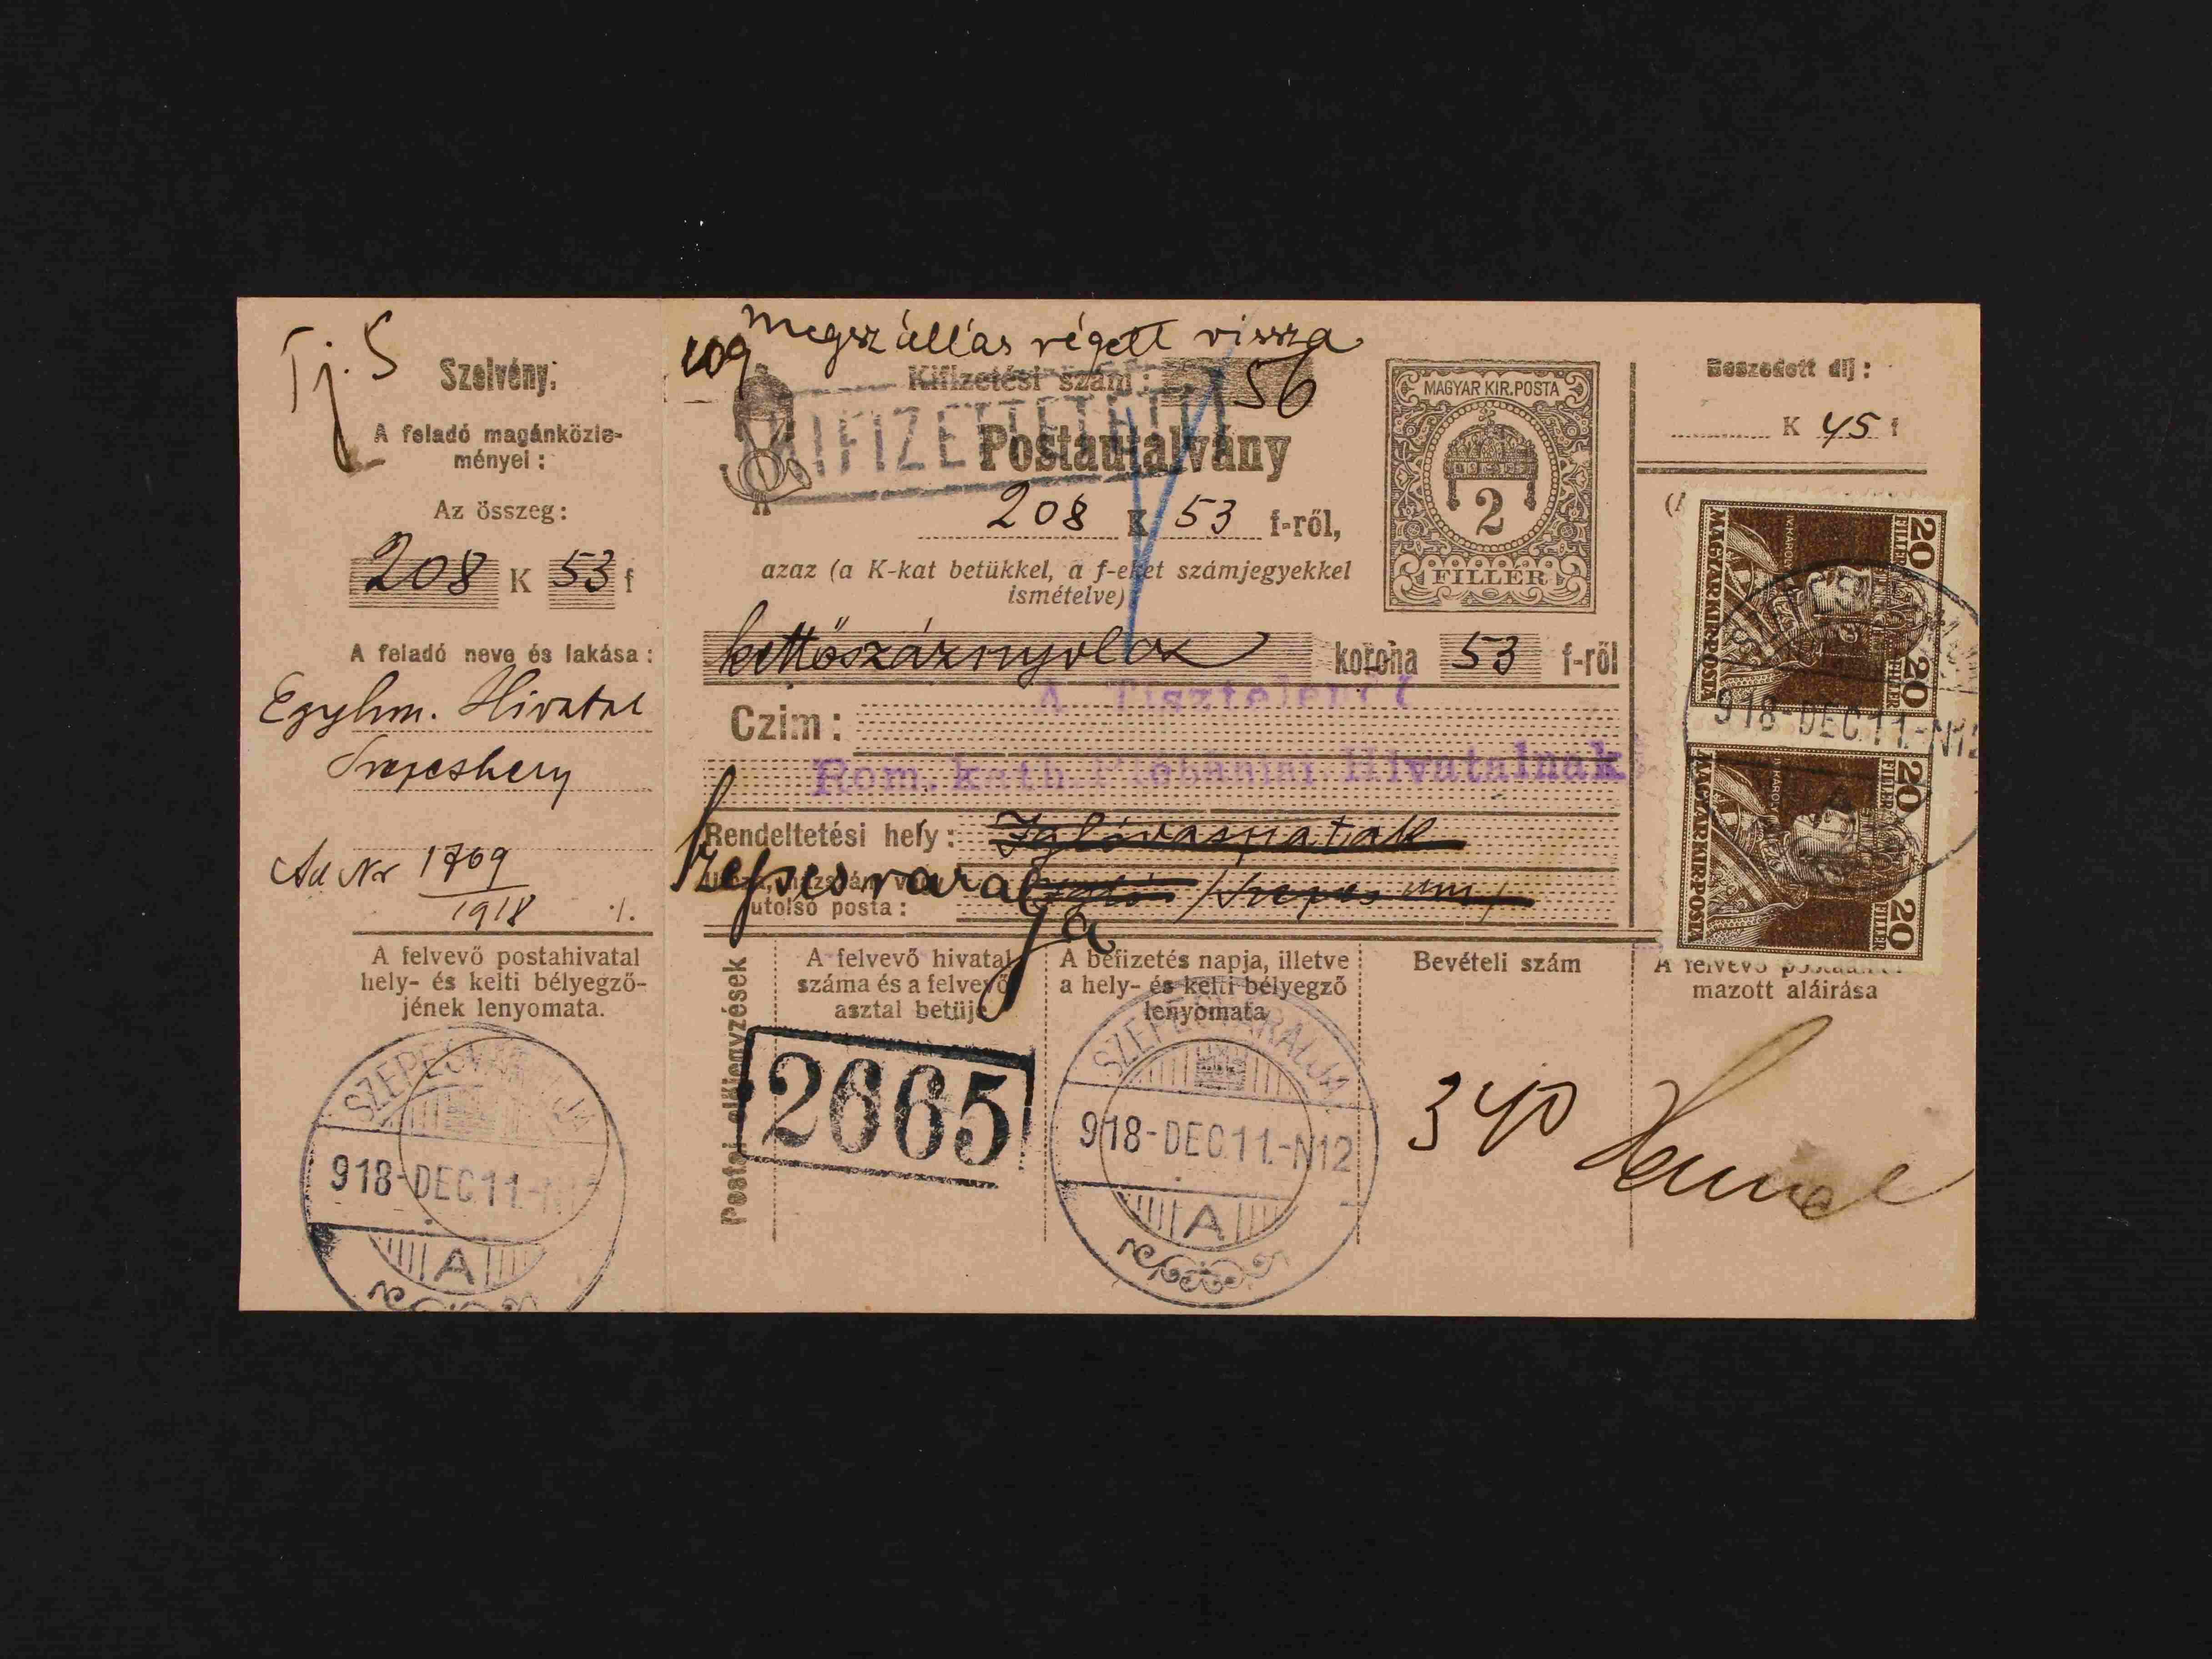 Tj. S
Szelvény:
A feladó magánközle-
ményei:
Az összeg:
208 K 53 f
A feladó neve és lakása:
Egyhm. Hivatal
Szepeshely
Ad Nr 1769
1918 ./.
A felvevő postahivatal
hely- és kelti bélyegző-
jének lenyomata.
SZEPESVÁRALJA
918-DEC.11.-N12
A
megszállás végett vissza
109
Kifizetési szám: 56
KIFIZETTETETT
Postautalvány
208 K 53 f-ről,
azaz (a K-kat betükkel, a f-eket számjegyekkel
ismételve)
kettőszáznyolcz korona 53 f-ről
A Tisztelendő
Czim:
Rom. kath. Plébániai Hivatalnak
Rendeltetési hely: Iglóvaspatak
Szepesváralja
Igló /Szepes vm/
utolsó posta:
MAGYAR KIR. POSTA
2
FILLÉR
Beszedett díj:
K 45 f
20 FILLÉR 20 FILLÉR
IV. KÁROLY
MAGYAR KIR. POSTA
918-DEC.11.-N12
20 FILLÉR 20 FILLÉR
IV. KÁROLY
MAGYAR KIR. POSTA
Postai előjegyzések
A felvevő hivatal
száma és a felvevő
asztal betüje
2665
A befizetés napja, illetve
a hely- és kelti bélyegző
lenyomata
SZEPESVÁRALJA
918-DEC.11.-N12
A
Bevételi szám
340
A felvevő
mazott aláirása